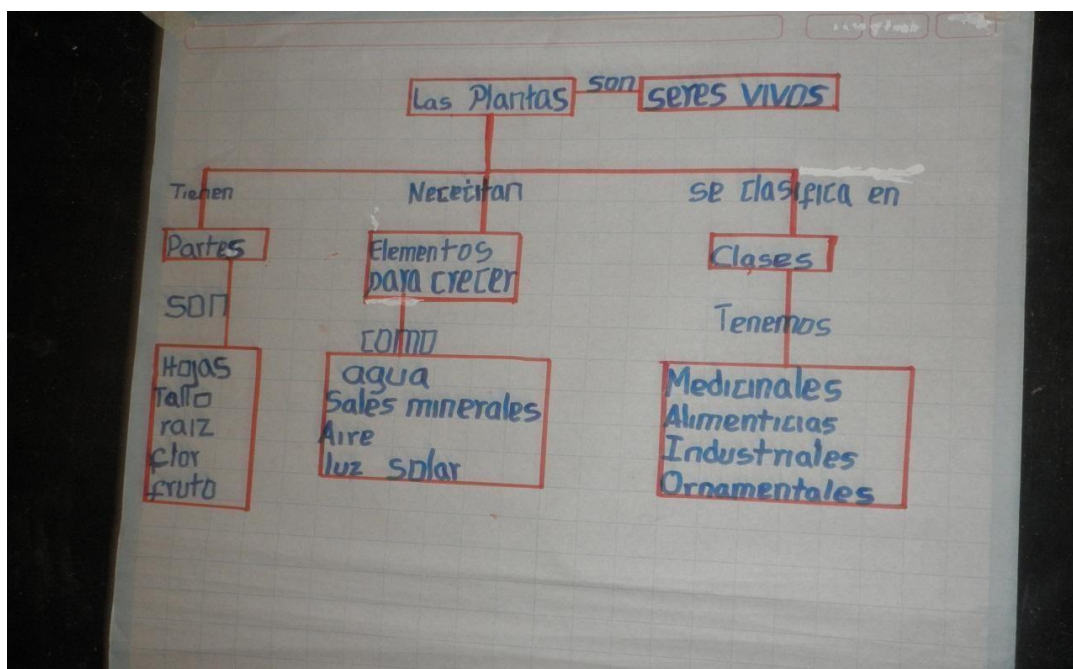 Las Plantas son seres vivos
Tienen
Partes
son
Hojas
Tallo
raiz
flor
fruto
Nececitan
Elementos
para crecer
como
agua
Sales minerales
Aire
luz solar
se clasifica en
Clases
Tenemos
Medicinales
Alimenticias
Industriales
Ornamentales